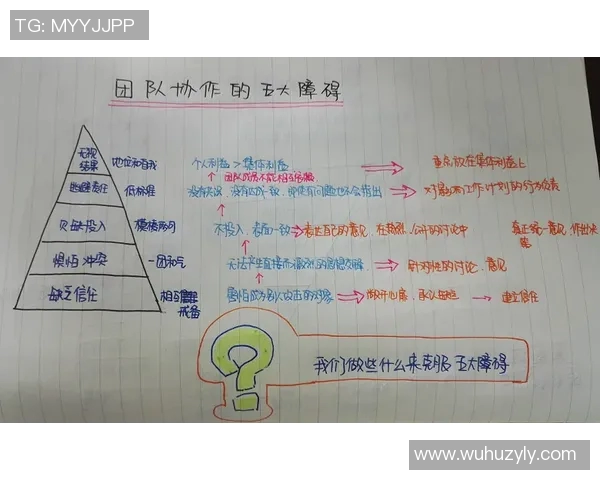 TG: MYYJJPP
团队协作的五大障碍
无视结果 地位和自我 个人利益 > 集体利益 重点放在集体利益上
团队成员不能相互
逃避责任 低标准 没有 没有 一致 对 工作计划的
欠缺投入 模棱两可 不投入、表面一致 表达自己的意见、在 公开的讨论中 真正统一意见、作出决定
惧怕冲突 一团和气 无法产生直接而激烈的思想交锋 针对性的讨论、意见
缺乏信任 相互戒备 害怕成为别人攻击的对象 敞开心扉、承认 建立信任
我们做些什么来克服五大障碍
www.wuhuzyly.com